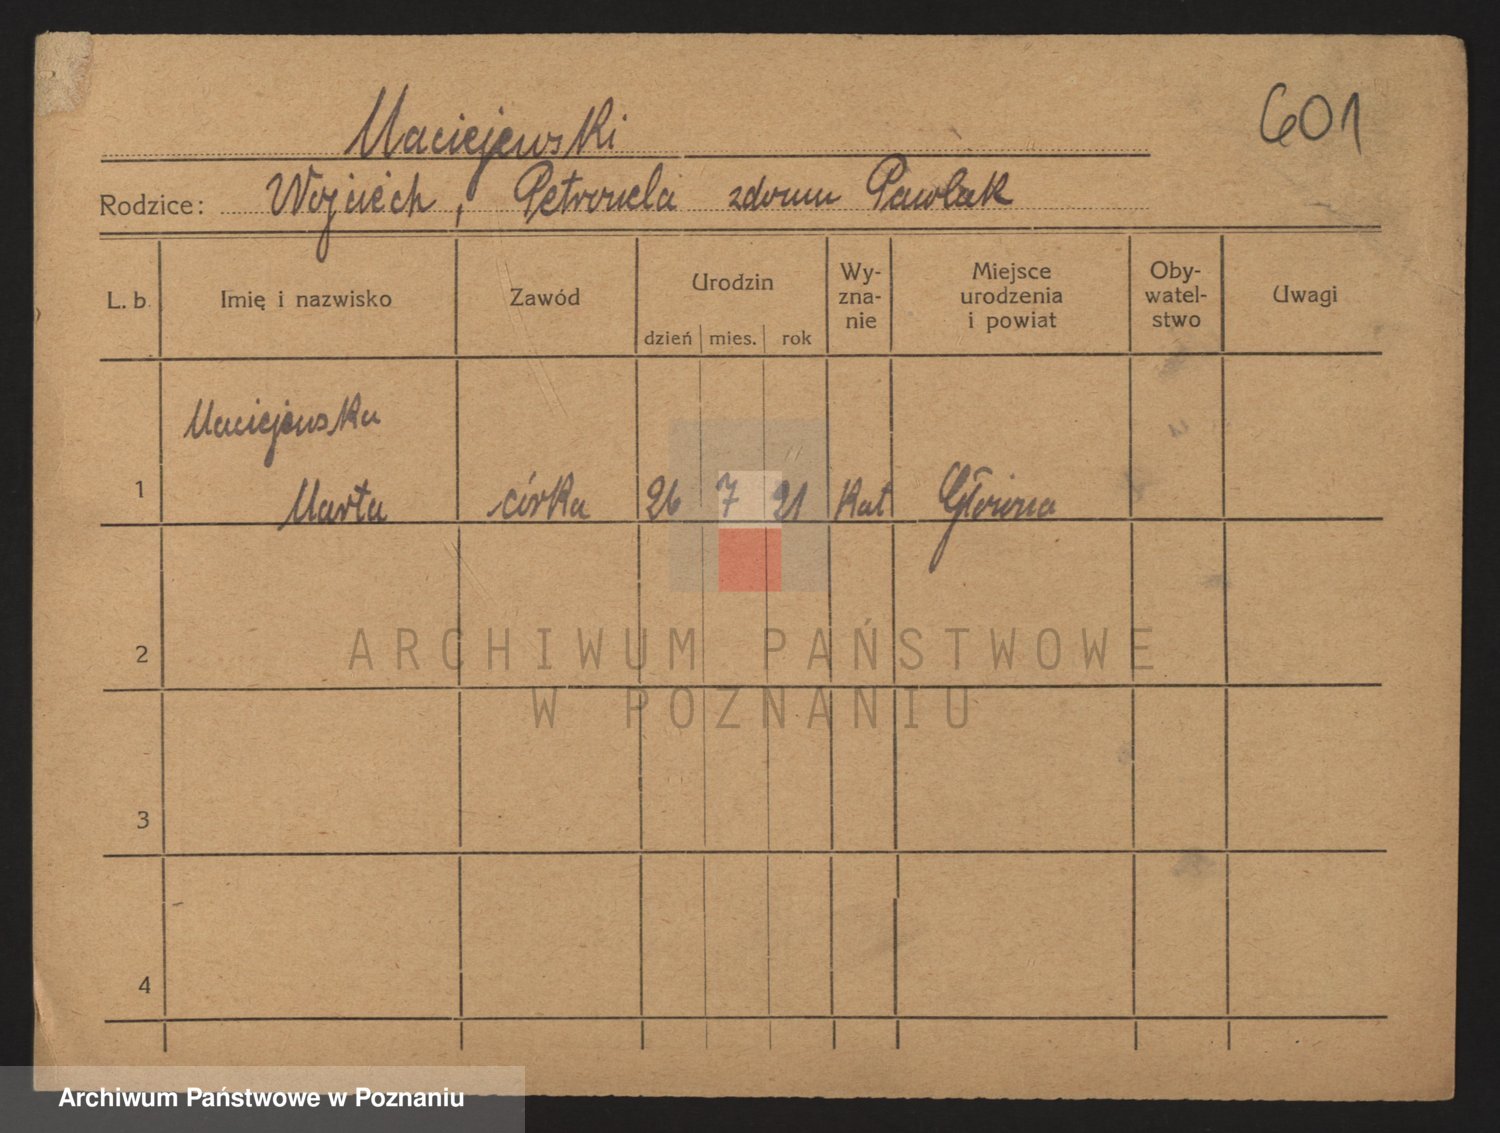 601
Maciejewski
Rodzice: Wojciech, Petronela zdomu Pawlak
L. b. Imię i nazwisko Zawód Urodzin Wy-zna-nie Miejsce urodzenia i powiat Oby-watel-stwo Uwagi
dzień mies. rok
Maciejewska
1 Marta córka 26 7 21 Kat Główna
2
ARCHIWUM PAŃSTWOWE
W POZNANIU
3
4
Archiwum Państwowe w Poznaniu